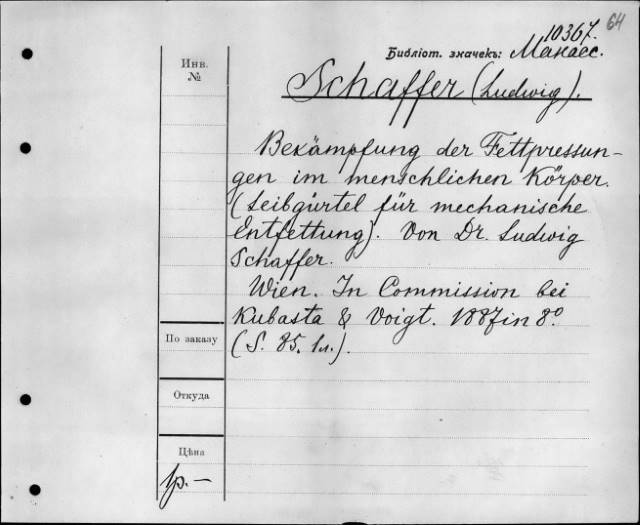 64
10367.
Библіот. значекъ: Манасс.
Инв.
№
Schaffer (Ludwig).
Bekämpfung der Fettpressun-
gen im menschlichen Körper.
(Leibgürtel für mechanische
Entfettung). Von Dr. Ludwig
Schaffer.
Wien. In Commission bei
Kubasta & Voigt. 1887 in 8º.
(S. 85. 1 л.).
По заказу
Откуда
Цѣна
1р.-